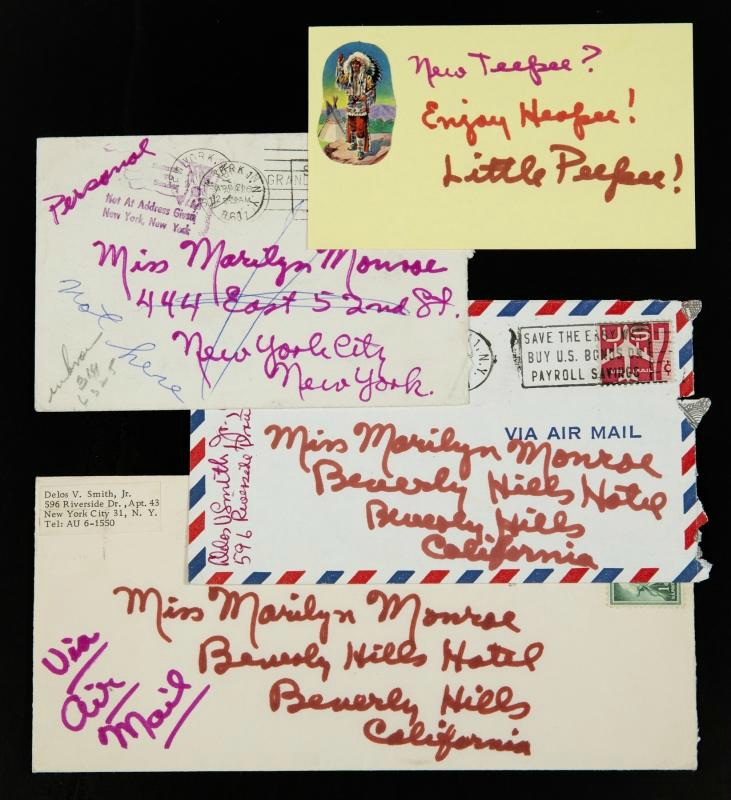 New Teepee?
Enjoy Heapee!
Little Peepee!
Personal
NEW YORK, N.Y.
GRAND
Not At Address Given
New York, New York
Miss Marilyn Monroe
444 East 52nd St.
New York City
New York.
not here
N.Y.
SAVE THE EASY WAY
BUY U.S. BONDS
PAYROLL SAVINGS
US
7c
AIR MAIL
VIA AIR MAIL
Delos V Smith Jr.
596 Riverside Drive
Miss Marilyn Monroe
Beverly Hills Hotel
Beverly Hills
California
Delos V. Smith, Jr.
596 Riverside Dr., Apt. 43
New York City 31, N. Y.
Tel: AU 6-1550
Miss Marilyn Monroe
Beverly Hills Hotel
Beverly Hills
California
Via
Air
Mail